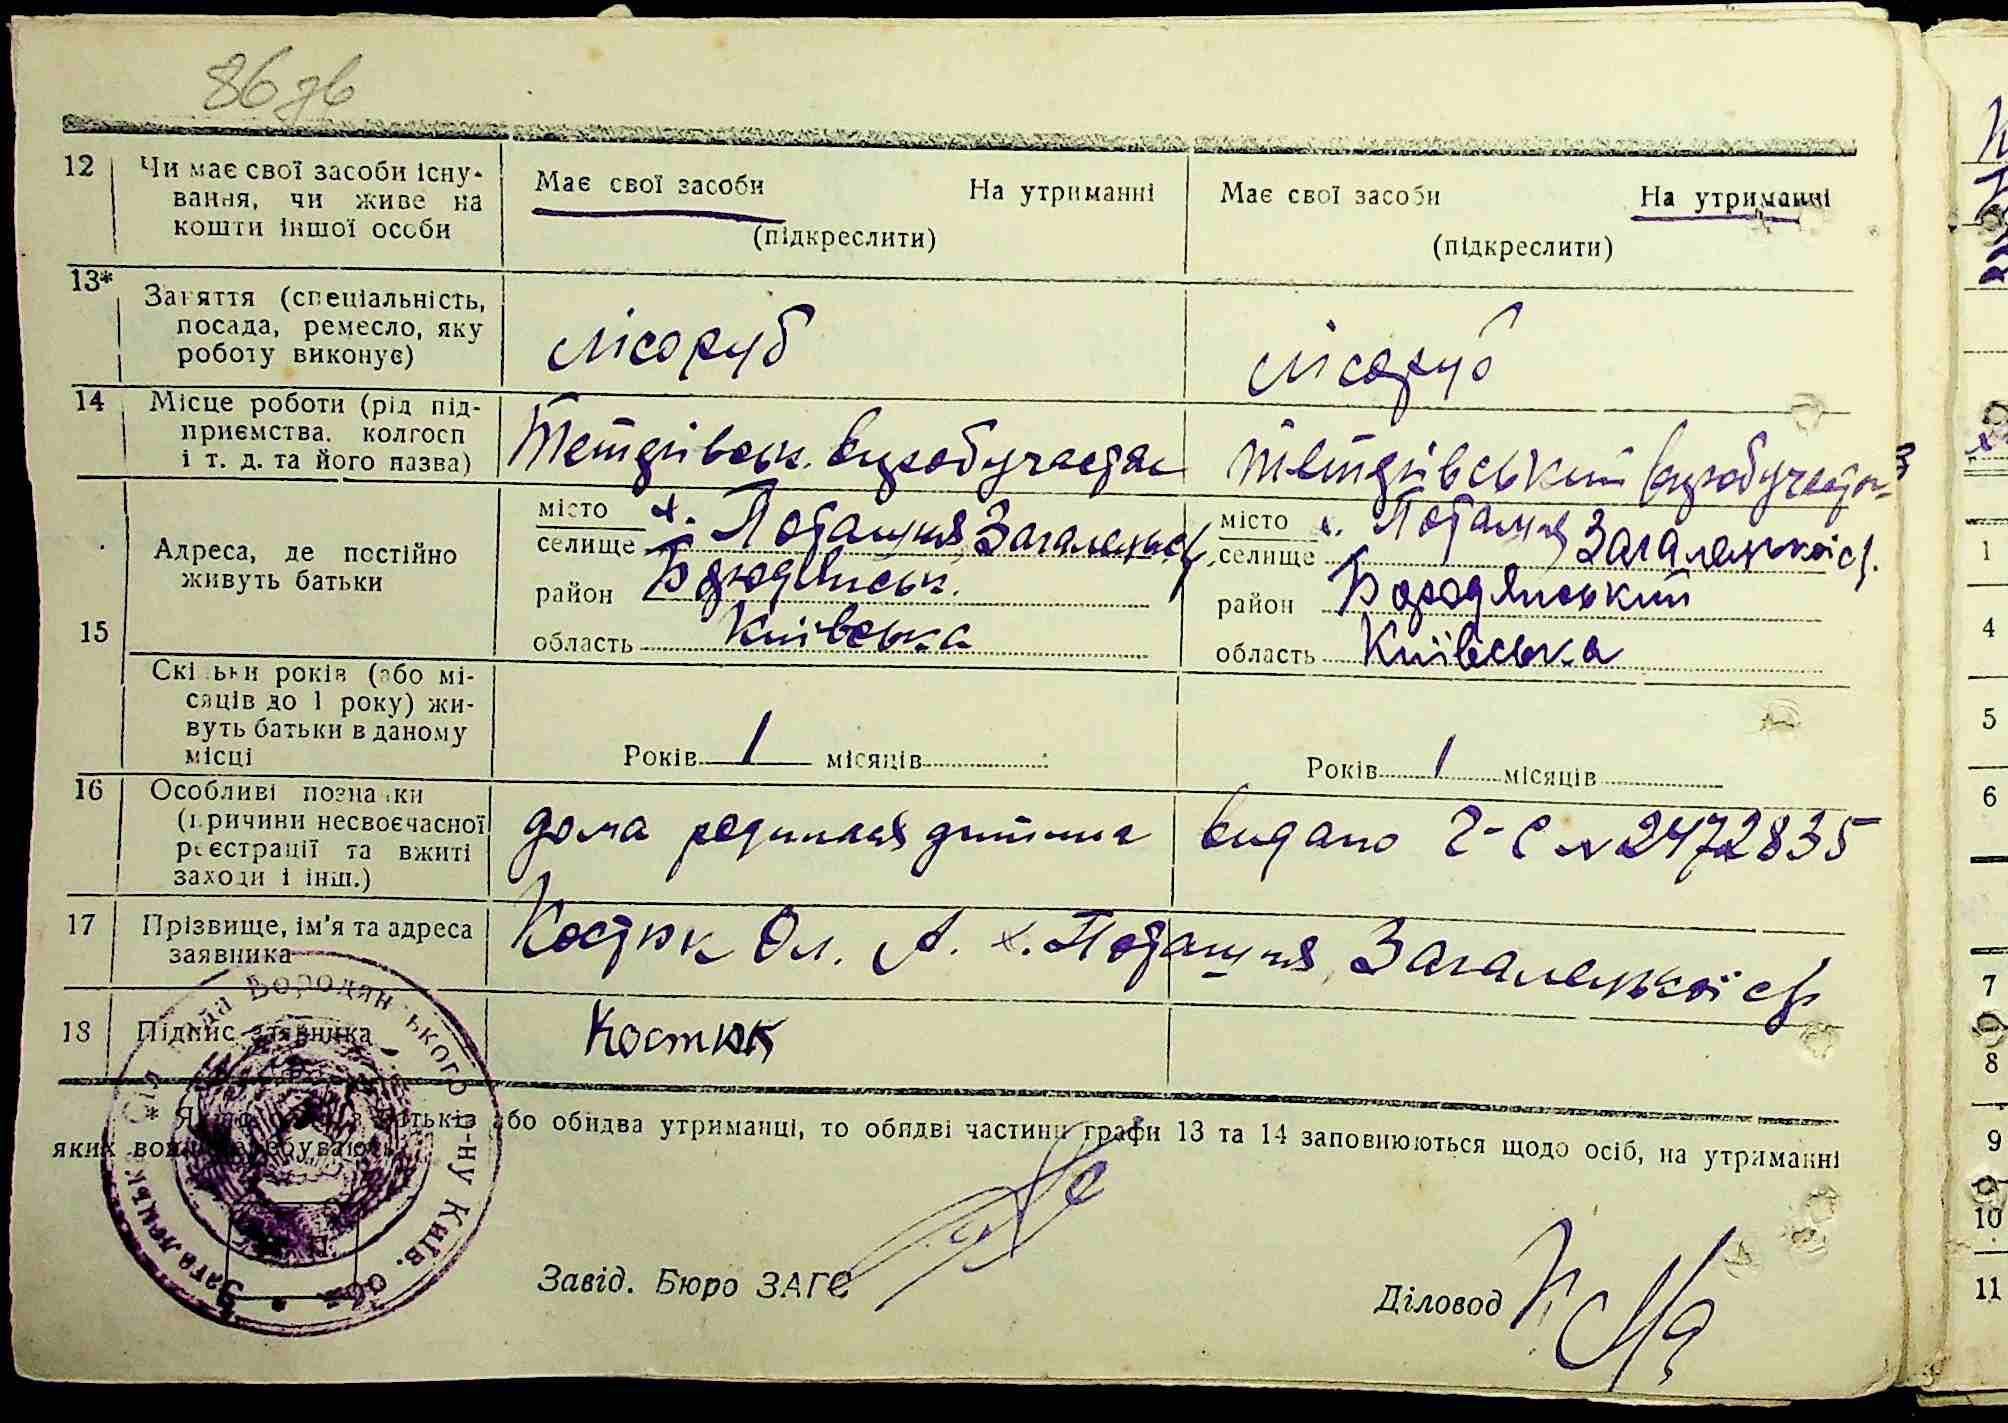 86 зв
12 Чи має свої засоби існу-
вання, чи живе на
кошти іншої особи
Має свої засоби На утриманні
(підкреслити)
Має свої засоби На утриманні
(підкреслити)
13* Заняття (спеціальність,
посада, ремесло, яку
роботу виконує)
лісоруб
лісоруб
14 Місце роботи (рід під-
приємства, колгосп
і т. д. та його назва)
Тетрівськ.
Тетрівський
15 Адреса, де постійно
живуть батьки
місто х. Поташня Загалецької
селище
район Бородянськ.
область Київська
місто х. Поташня Загалецької с/
селище
район Бородянський
область Київська
Скільки років (або мі-
сяців до 1 року) жи-
вуть батьки в даному
місці
Років 1 місяців
Років 1 місяців
16 Особливі познаки
(причини несвоєчасної
реєстрації та вжиті
заходи і інш.)
дома
видано № 2472835
17 Прізвище, ім'я та адреса
заявника
Костюк Ол. А. х. Поташня, Загалецької с/р
18 Підпис заявника
Костюк
* Якщо батьків або обидва утриманці, то обидві частини графи 13 та 14 заповнюються щодо осіб, на утриманні
яких вони перебувають.
Завід. Бюро ЗАГС
Діловод
Загалецьк. сіл рада Бородянського р-ну Київ. обл.
1
4
5
6
7
8
9
10
11